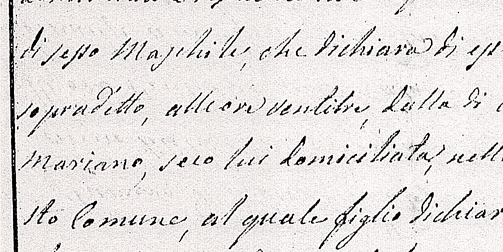 di sesso Maschile, che dichiara di es
sopradetto, alle ore ventitre, dalla di
Mariano, seco lui domiciliata, nell
sto Comune, al quale figlio dichiar